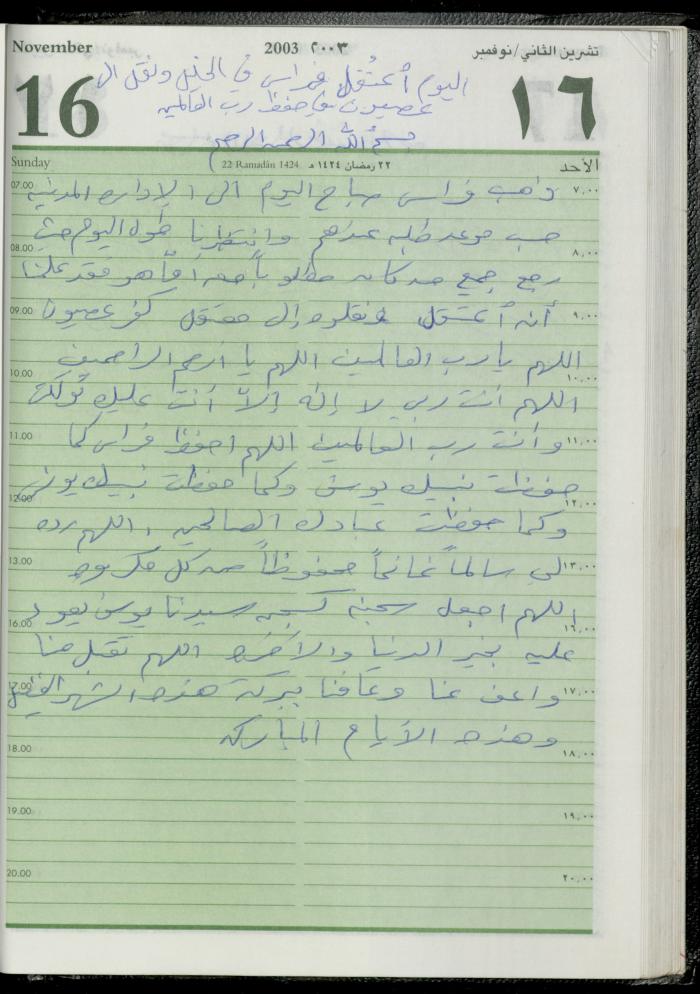 November 2003 ٢٠٠٣ تشرين الثاني/نوفمبر
16 ١٦
اليوم أعتُقل فراس في الخليل ونقل الى
عصيون في حفظ رب العالمين
بسم الله الرحمن الرحيم
Sunday 22 Ramadân 1424 ٢٢ رمضان ١٤٢٤ هـ الأحد
07.00 ذهب فراس صباح اليوم الى الإدارة المدنية ٧,٠٠
حسب موعد طلبه عندهم وانتظرنا طوال اليوم حتى
08.00 ٨,٠٠
رجع جميع من كان مطلوباً معه أمّا هو فقد علمنا
09.00 أنه أعتقل ونقلوه إلى معتقل كفر عصيون ٩,٠٠
اللهم يا رب العالمين اللهم يا أرحم الراحمين
10.00 ١٠,٠٠
اللهم أنت ربي لا إله إلاّ أنت عليك توكلت
11.00 وأنت رب العالمين اللهم احفظ فراس كما ١١,٠٠
حفظت نبيك يوسف وكما حفظت نبيك يونس
12.00 ١٢,٠٠
وكما حفظت عبادك الصالحين، اللهم رده
13.00 لي سالماً غانماً محفوظاً من كل مكروه ١٣,٠٠
اللهم اجعل سجنه كسجن سيدنا يوسف يعود
16.00 ١٦,٠٠
عليه بخير الدنيا والآخرة اللهم تقبل منا
17.00 واعف عنا وعافنا ببركة هذا الشهر الفضيل ١٧,٠٠
وهذه الأيام المباركه
18.00 ١٨,٠٠
19.00 ١٩,٠٠
20.00 ٢٠,٠٠